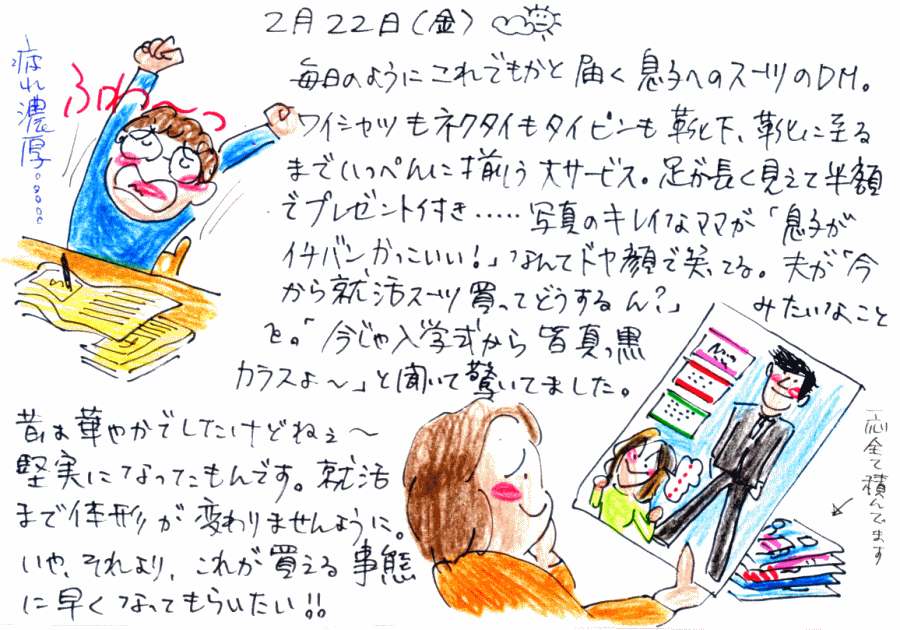 2月22日(金)
毎日のようにこれでもかと届く息子へのスーツのDM。
ワイシャツもネクタイもタイピンも靴下、靴に至る
までいっぺんに揃う大サービス。足が長く見えて半額
でプレゼント付き……写真のキレイなママが「息子が
イチバンかっこいい!」なんてドヤ顔で笑ってる。夫が「今
から就活スーツ買ってどうするん?」みたいなこと
を。「今じゃ入学式から皆真っ黒
カラスよ～」と聞いて驚いてました。
昔は華やかでしたけどねぇ～
堅実になってたもんです。就活
まで体形が変わりませんように。
いや、それより、これが買える事態
に早くなってもらいたい!!
疲れ濃厚。。。。。。
ふわ～っ
一応全て積んでます